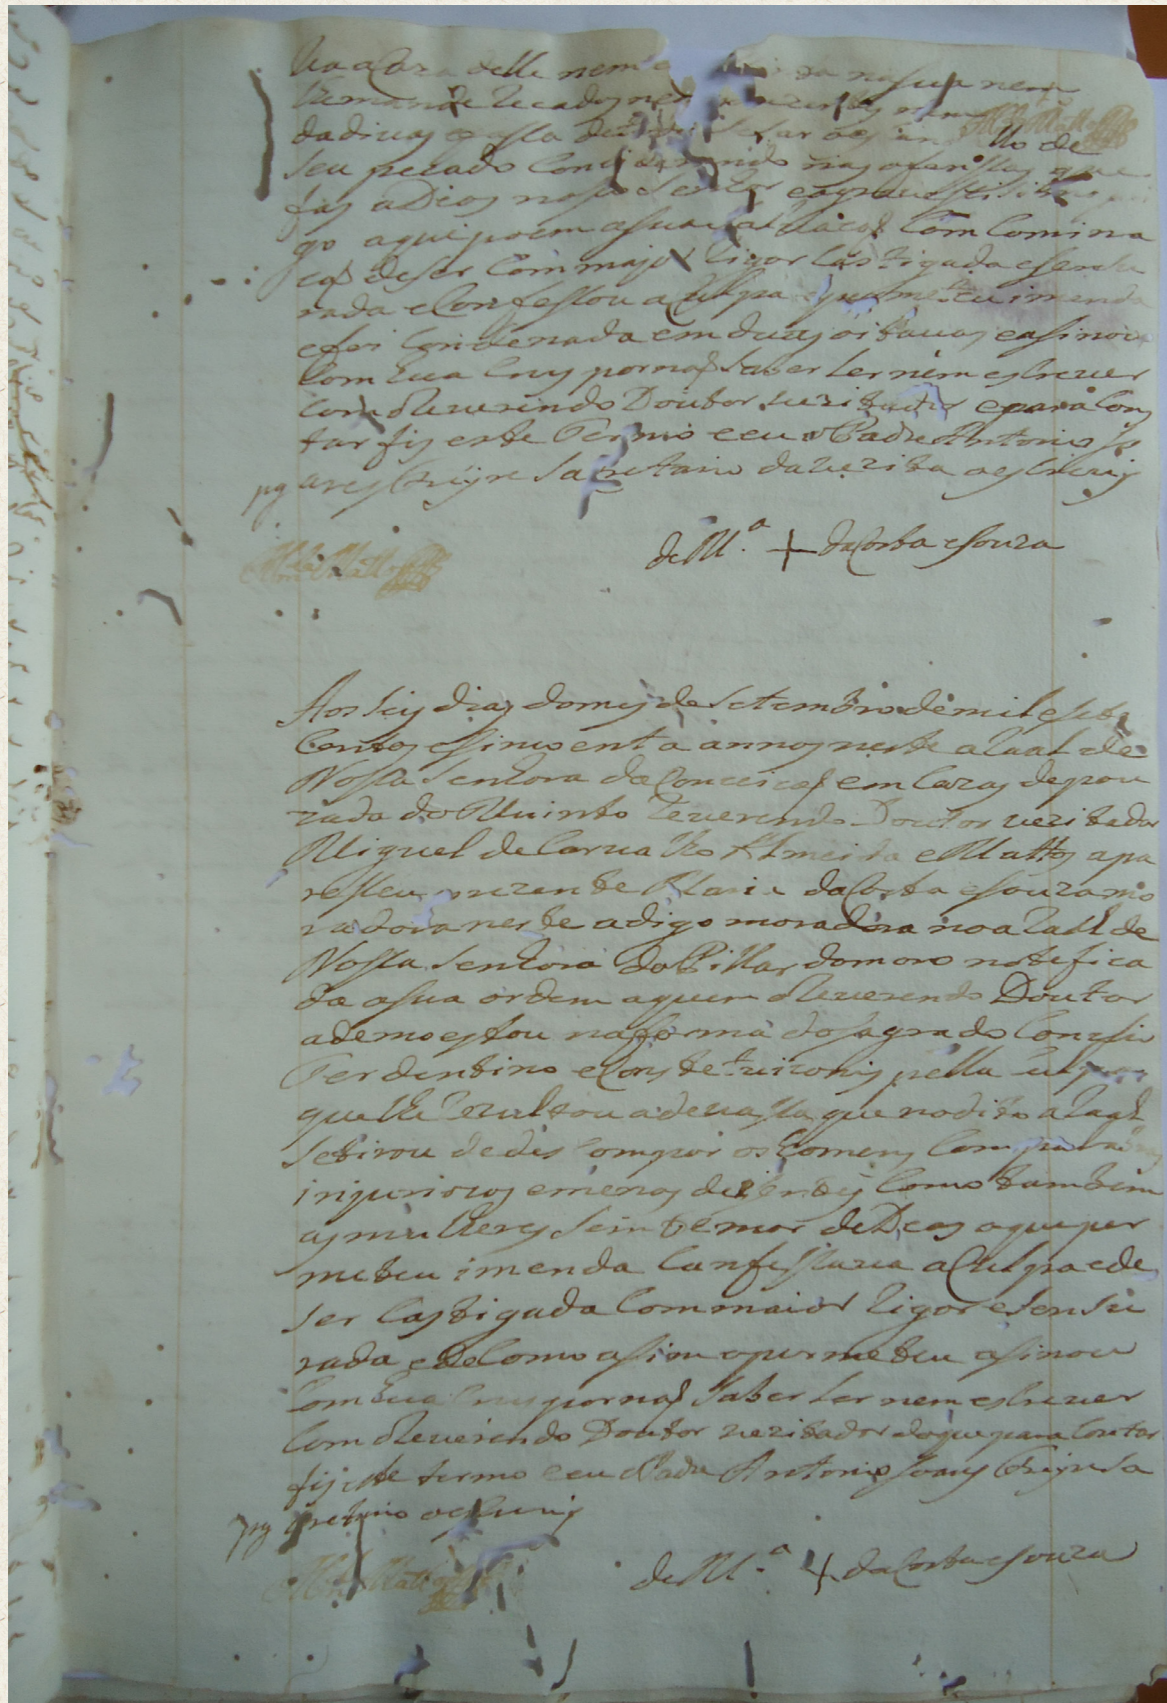 Va a Caza delle nem na sua nem
lhe mande recados nem prezentes nem
dadivas e
seu pecado Considerando nas ofenssas que
fas a Deos noso Senhor
go a que poem a sua salvacaõ Com Comina
caõ de ser Com major rigor Castigada e sensu
rada e Confessou a Culpa e prometeu imenda
e foi Condenada em duas oitavas e asinou
Com hua Crus por naõ saber Ler nem escrever
Com o Reverendo Doutor vezitador e para Cons
tar fis este Termo e eu o Padre Antonio So
ares Freyre Sacretario da vezita o escrevy
pg
de M.ª + da Costa e Souza
Aos seis dias do mes de Setembro de mil e sete
Centos e sincoenta annos neste aRaal de
Nossa Senhora da Conceicaõ em Cazas de pou
zada do Muinto Reverendo Doutor vezitador
Miguel de Carvalho Almeida e Mattos apa
resseu prezente Maria da Costa e Souza mo
radora neste a digo moradora no aRaal de
Nossa Senhora do Pillar do moro notefica
da a sua ordem a quem o Reverendo Doutor
ademoestou na forma do sagrado Concilio
Terdentino e Constetuiconis pella Culpa
que lhe Rezultou a devassa que no dito aRaal
se tirou de des Compoir os homens Com palavras
injuriozas e menos desentes Como tambem
as mulheres sem temor de Deos a que per
meteu imenda Confessava a Culpa e de
ser Castigada Com maior rigor e sensu
rada e de Como asim o permeteu asinou
Com hua Crus por naõ saber Ler nem escrever
Com o Reverendo Doutor vezitador do que para Contar
fis este termo e eu o Padre Antonio Soares Freyre Sa
cretario o escrevy
pg
de M.ª + da Costa e Souza